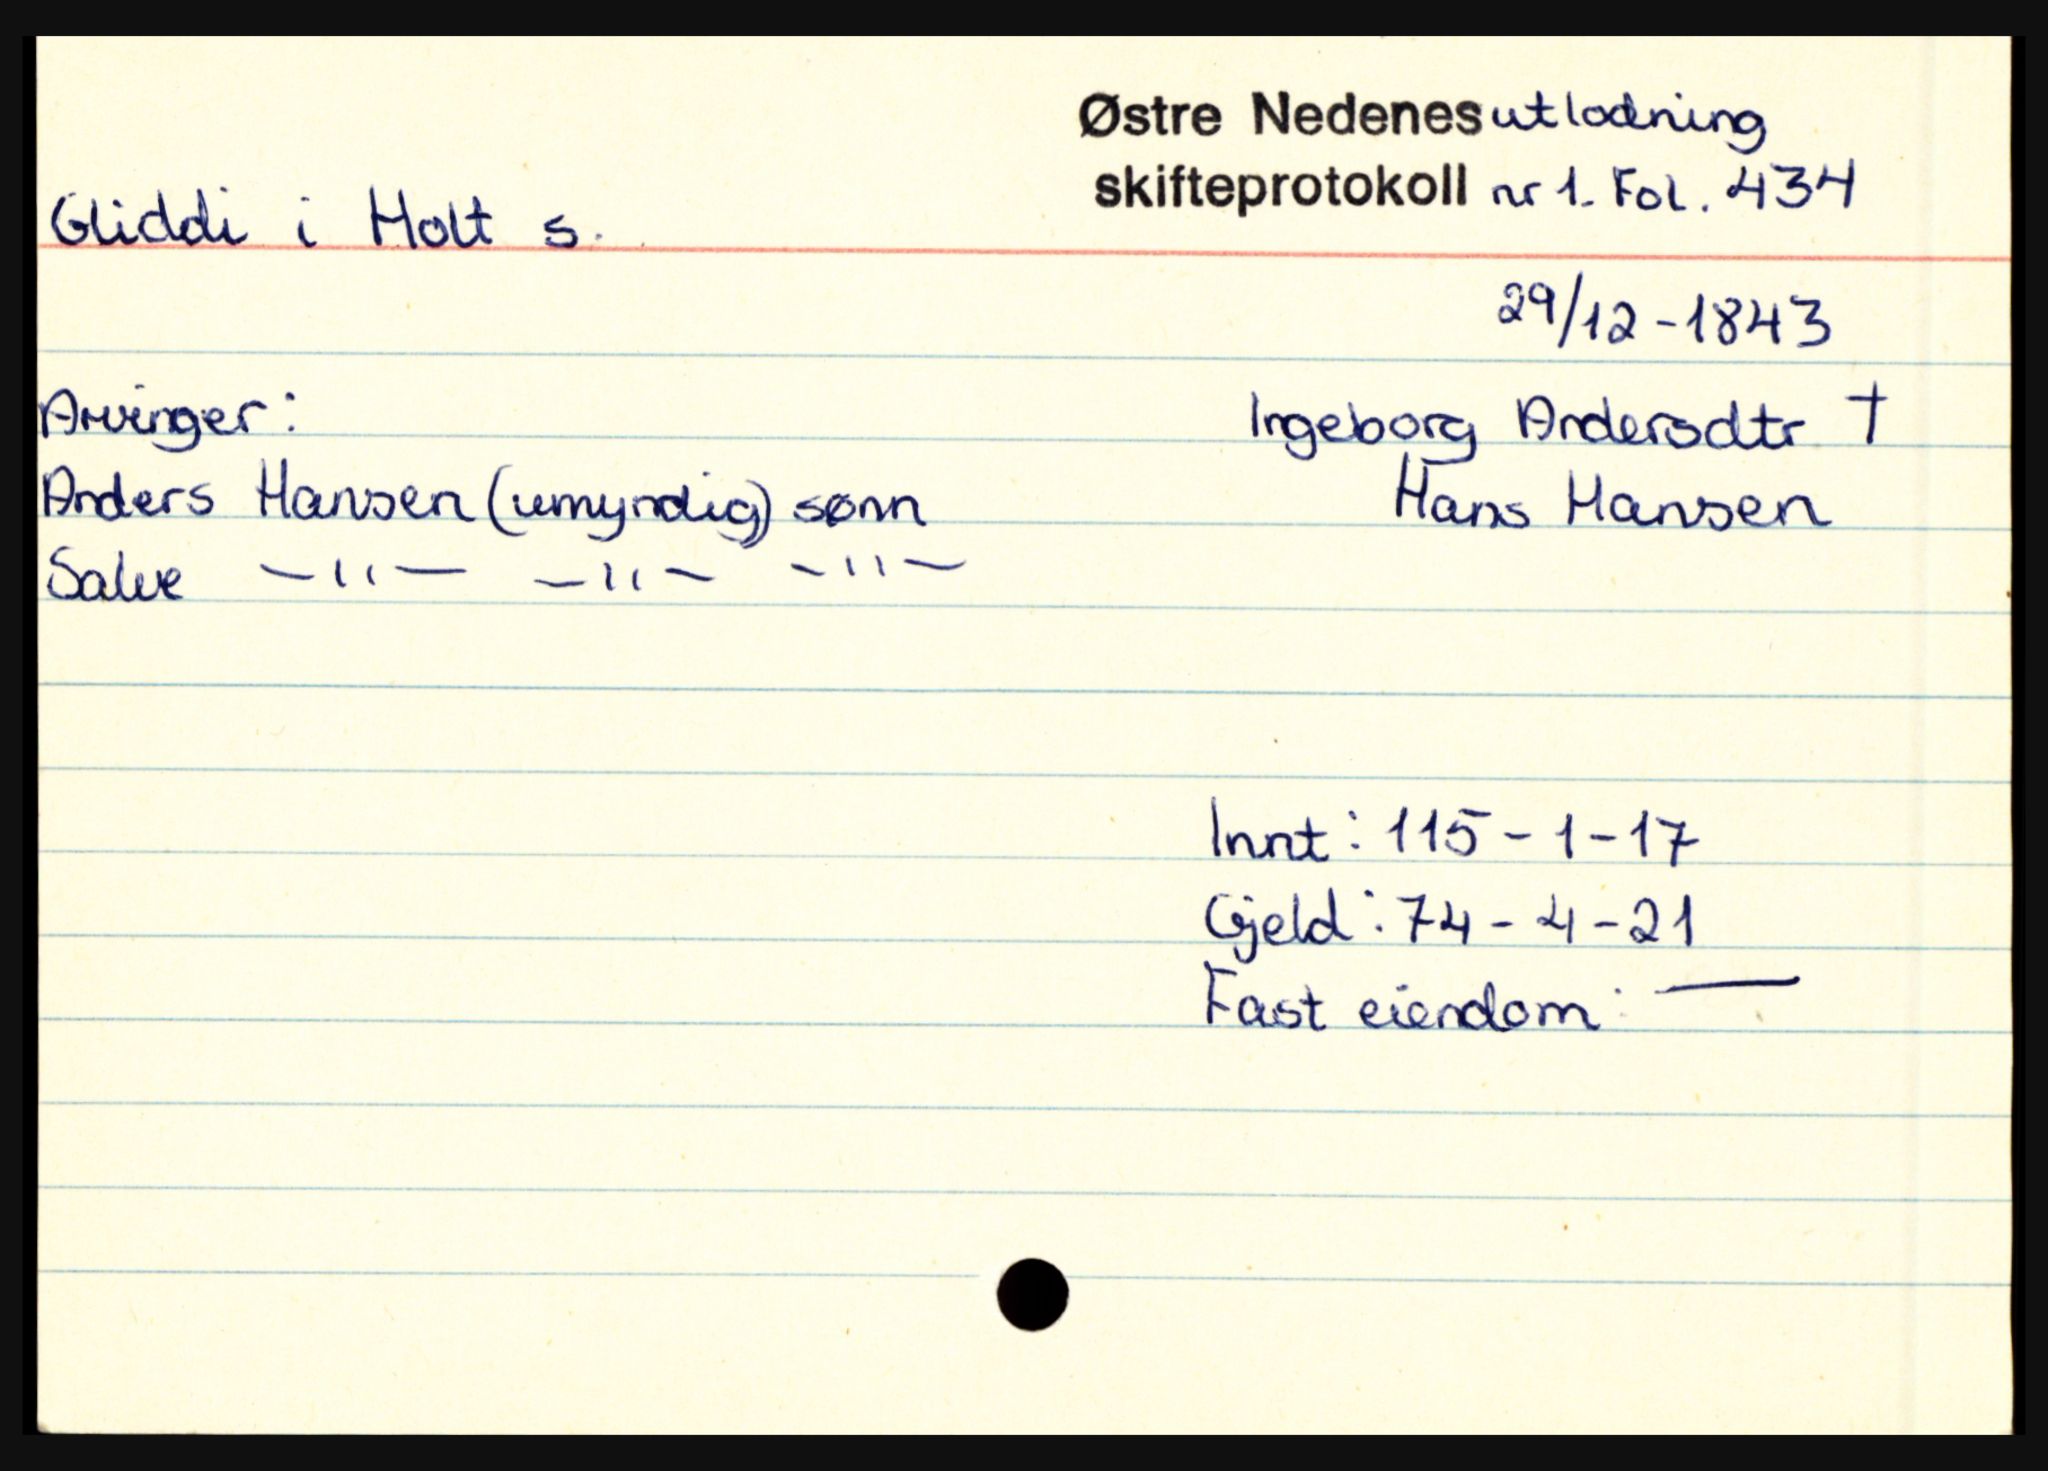 Østre Nedenes utlodning
skifteprotokoll nr 1. Fol. 434
Gliddi i Holt s.
29/12-1843
Arvinger:
Ingeborg Andersdtr †
Anders Hansen (umyndig) sønn
Hans Hansen
Salve —"— —"— —"—
Innt: 115-1-17
Gjeld: 74-4-21
Fast eiendom: —